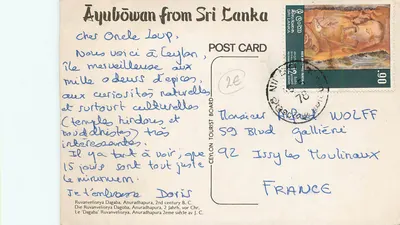 Āyubōwan from Sri Lanka
POST CARD
Cher Oncle Loup.
Nous voici à Ceylon,
île merveilleuse aux
mille odeurs d'épices,
aux curiosités naturelles
et surtout culturelles
(temples hindous et
bouddhistes) très
intéressantes.
Il y a tant à voir, que
15 jours sont tout juste
le minimum.
Je t'embrasse Doris
Ruvanveliseya Dagaba, Anuradhapura, 2nd century B. C.
Die Ruvanveliseya Dagoba, Anuradhapura, 2 Jahrh. vor Chr.
Le "Dagaba" Ruvanveliseya Anuradhapura 2eme siècle av J. C.
CEYLON TOURIST BOARD
2€
1.00
Monsieur WOLFF
59 Blvd Galliéni
92 Issy les Moulinaux
FRANCE